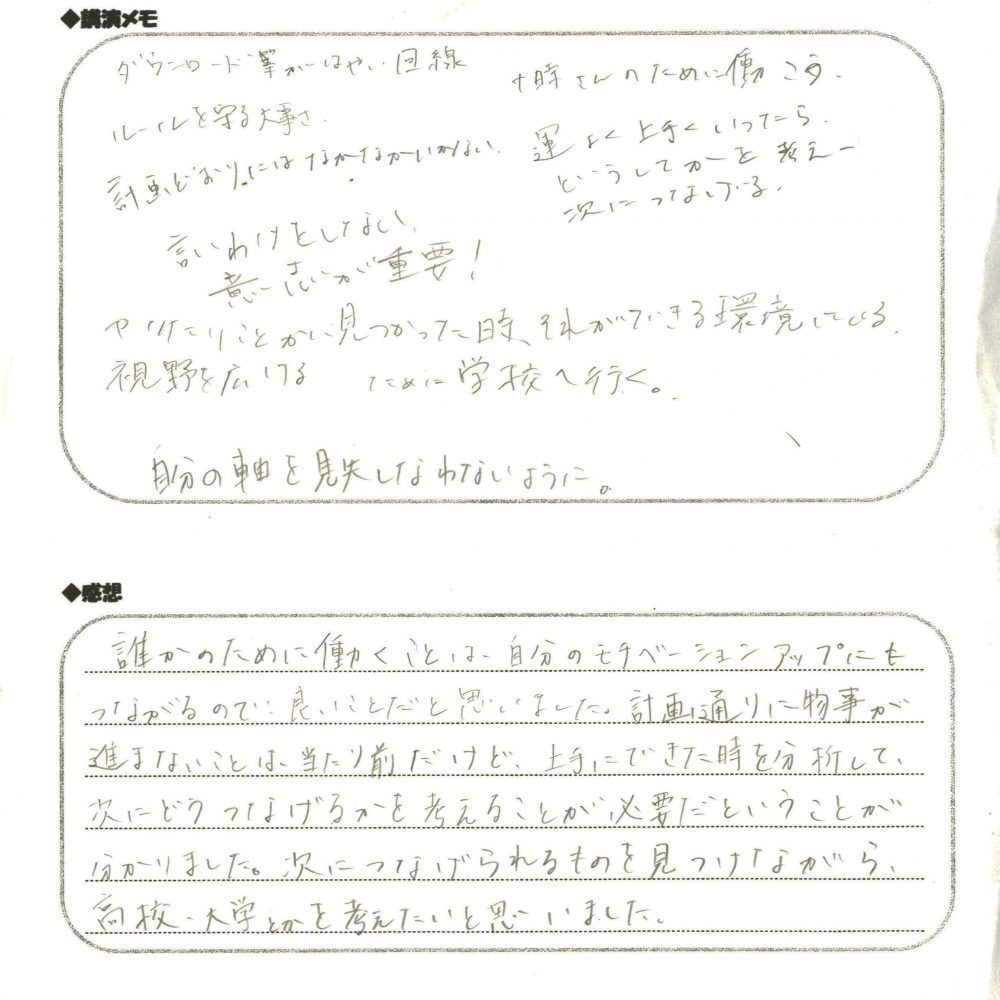 ◆講演メモ
ダウンロード等がはやい回線
ルールを守る大事さ.
計画どおりにはなかなかいかない.
言いわけをしない.
意志が重要!
十時さんのために働こう.
運よく上手くいったら.
どうしてかーを考えー
次につなげる.
やりたいことが見つかった時、それができる環境にいる.
視野を広げる ために学校へ行く。
自分の軸を見失しなわないように。
◆感想
誰かのために働くことは、自分のモチベーションアップにも
つながるので、良いことだと思いました。計画通りに物事が
進まないことは、当たり前だけど、上手にできた時を分析して、
次にどうつなげるかを考えることが必要だということが
分かりました。次につなげられるものを見つけながら、
高校、大学とかを考えたいと思いました。